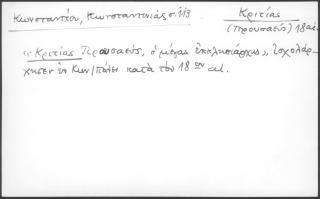 Κωνσταντίου, Κωνσταντινιάς σ. 113
Κριτίας
(Προυσαεύς) 18 αι.
«Κριτίας Προυσαεύς, ὁ μέγας ἐκκλησιάρχης», ἐσχολάρ-
χησεν ἐν Κων/πόλει κατὰ τὸν 18ον αἰ.